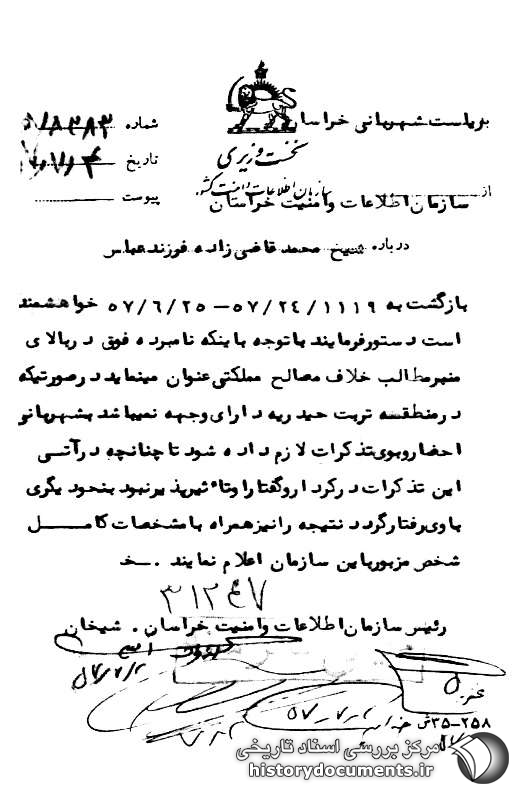 بریاست شهربانی خراسان
شماره ۱۸۳۸۳
تاریخ
پیوست
نخست وزیری
سازمان اطلاعات و امنیت کشور
از سازمان اطلاعات وامنیت خراسان
درباره شیخ محمد قاضی زاده فرزند عباس
بازگشت به ۱۱۱۹/ ۵۷/۲۴ – ۵۷/۶/۲۵ خواهشمند
است دستورفرمایند باتوجه باینکه نامبرده فوق دربالای
منبرمطالب خلاف مصالح مملکتی عنوان مینماید درصورتیکه
درمنطقسه تربت حیدریه دارای وجهه نمیباشد بشهربانی
احضاروبوی تذکرات لازم داده شود تا چنانچه درآتسی
این تذکرات درکرداروگفتاراوتاء ثیرپذیرنبود بنحودیگری
باوی رفتارگردد نتیجه رانیزهمراه بامشخصات کامسل
شخص مزبورباین سازمان اعلام نمایند . خ
۳۱۲۴۷
رئیس سازمان اطلاعات وامنیت خراسان . شیخان
۵۷/۷/۲
۳۵-۲۵۸ش
مرکز بررسی اسناد تاریخی
historydocuments.ir